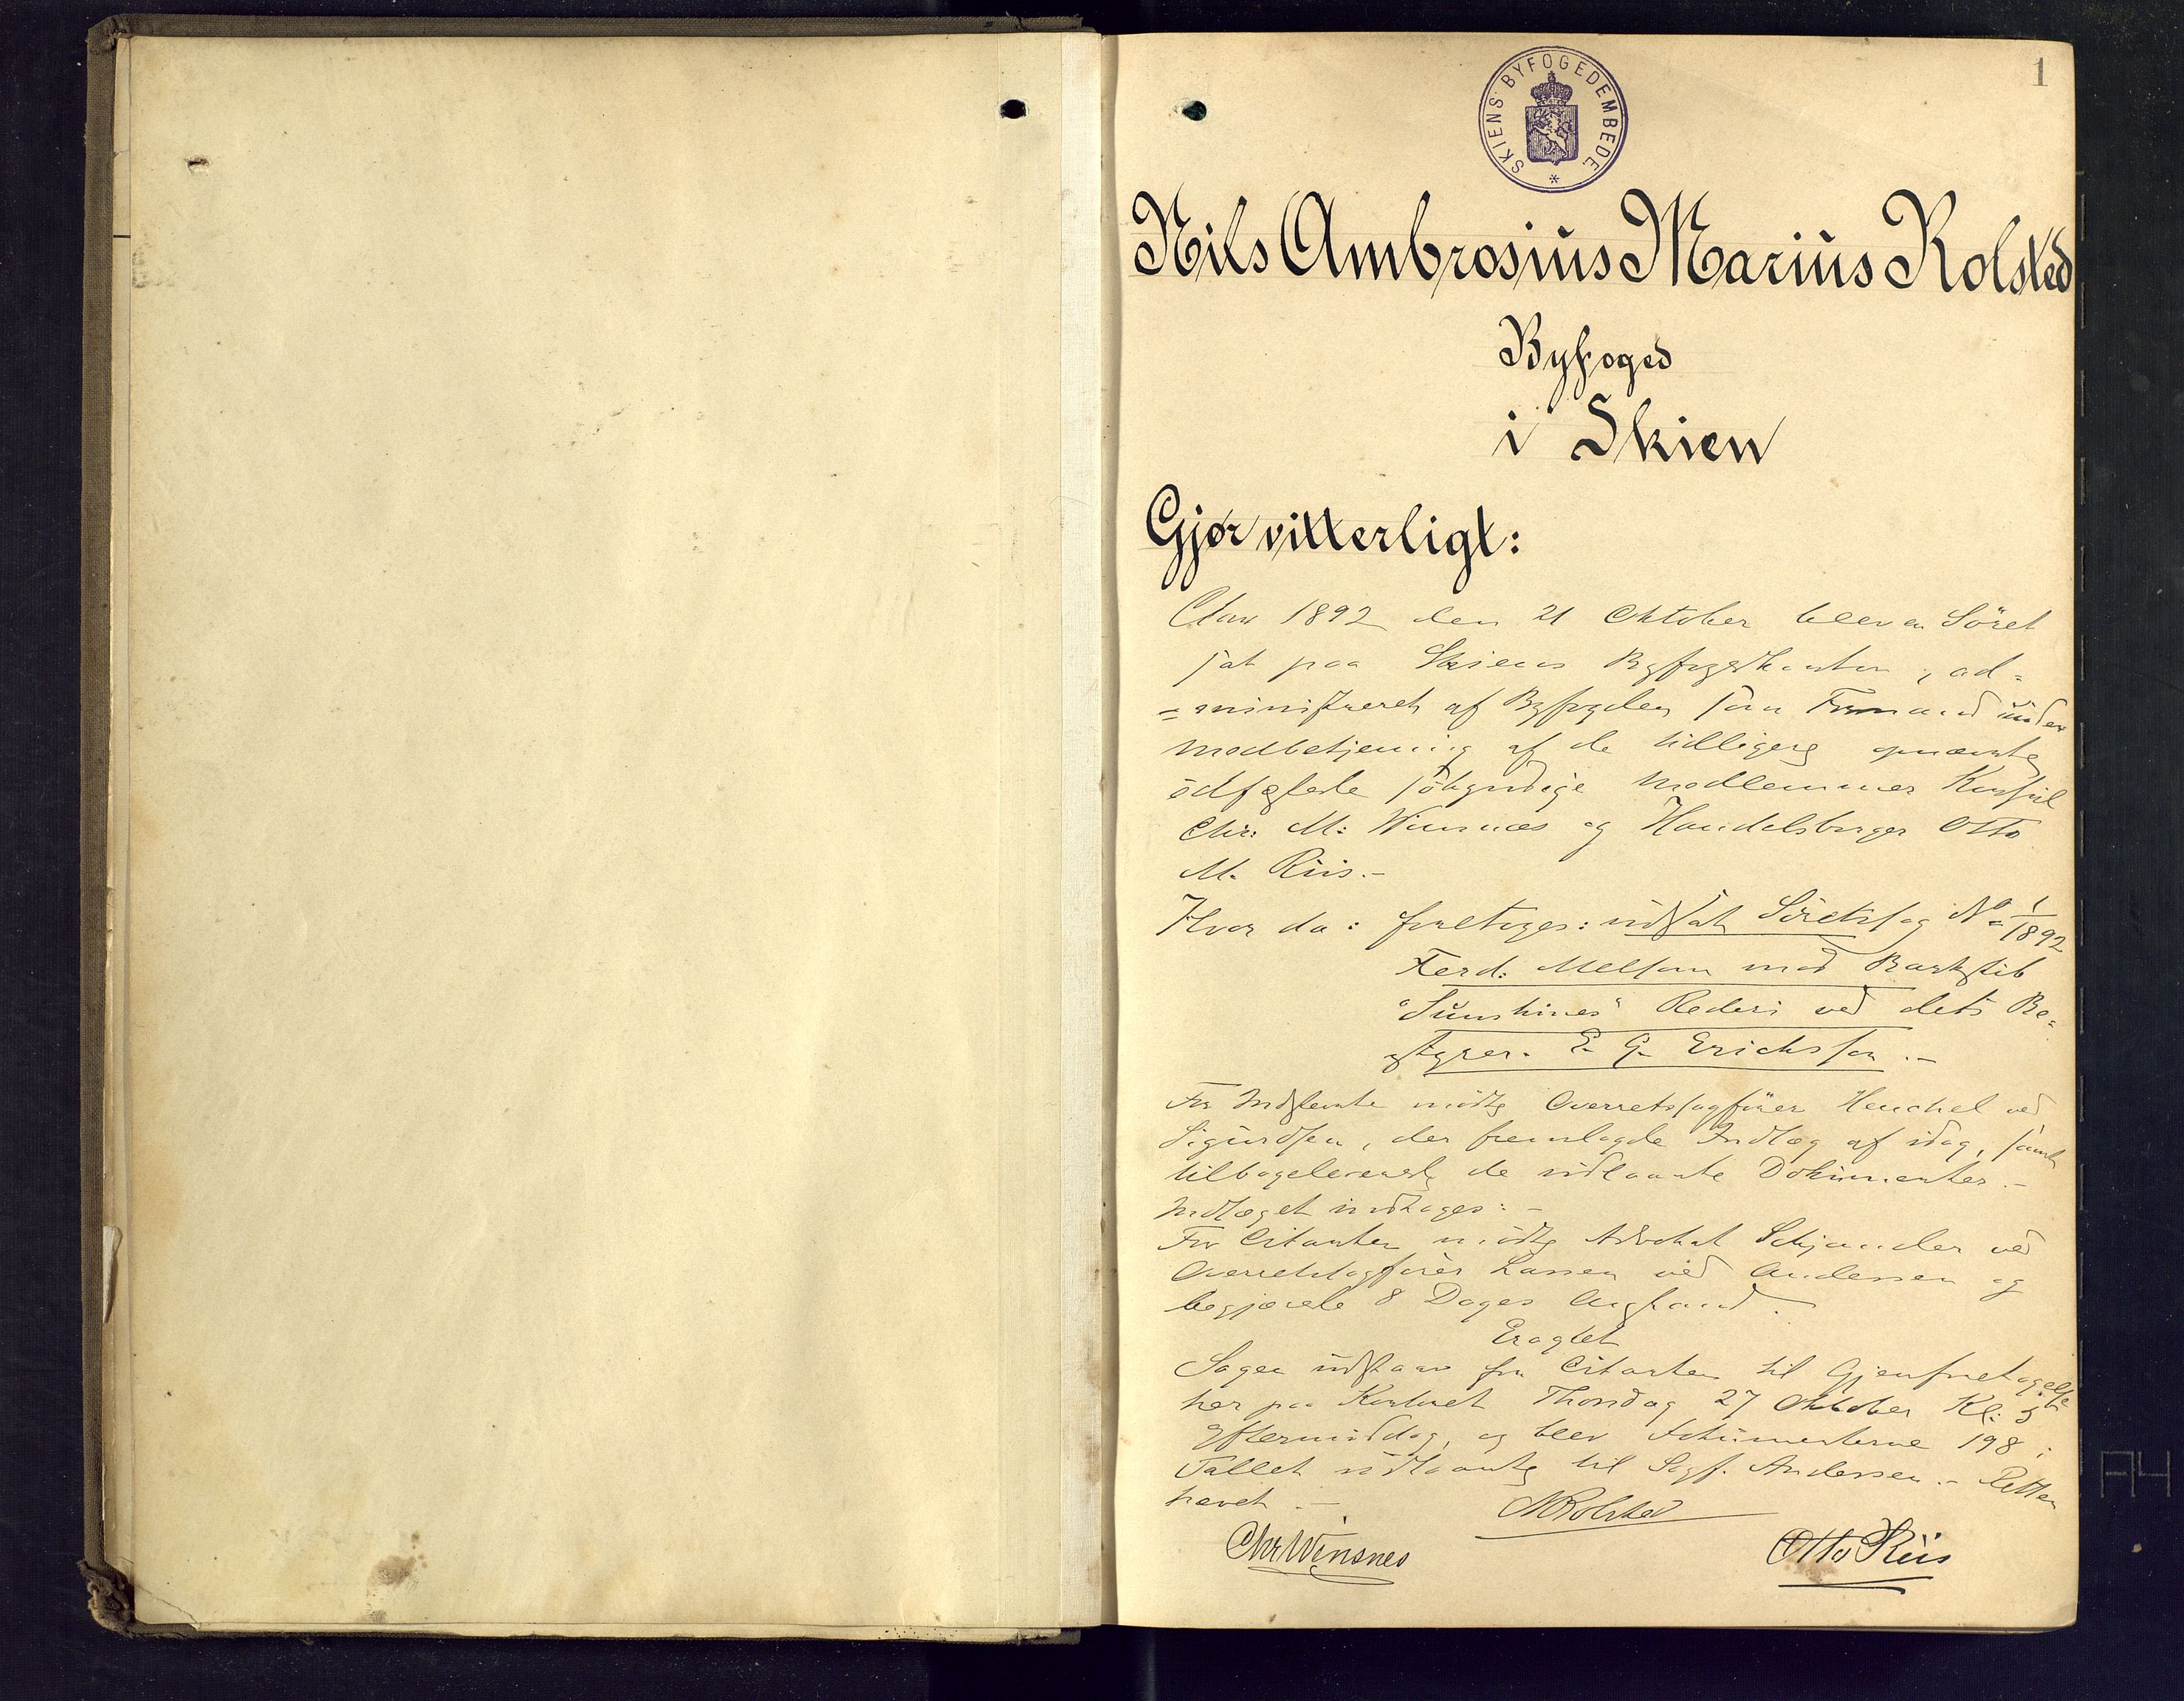 1
SKIENS BYFOGEDEMBEDE *
Nils Ambrosius Marius Kolsted
Byfoged
i Skien
Gjør vitterligt:
Aar 1892 den 21 Oktober blev en Söret
sat paa Skiens Byfogedkontor, ad=
=ministreret af Byfogden som Formand under
medbetjening af de tidligere opnævnte
edfæstede søkyndige medlemmer Konsul
Chr: M: Winsnes og Handelsborger Otto
M. Riis.-
Hvor da: foretoges: udsat Söretssag No 1/1892
Ferd: Melsom mod Barkskib
"Sunshines" Rederi ved dets Be=
styrer E. G. Erichsen.-
For Indstevnte mödte Overretssagförer Henchel ved
Sigurdsen, der fremlagde Indlæg af idag, samt
tilbageleverede de udlaante Dokumenter.-
Indlæget indtages:-
For Citanten mödte Advokat Schjander ved
Overretssagförer Lassen ved Andersen og
begjærede 8 Dages Anstand.
Eragtet
Sagen udstaar for Citanten til Gjenforetagelse
her paa Kontoret Thorsdag 27 Oktober Kl: 5
Eftermiddag, og blev Dokumenterne 198 i
Tallet udlaante til Sagf. Andersen.- Retten
hævet.-
NKolsted
Chr Winsnes
Otto Riis